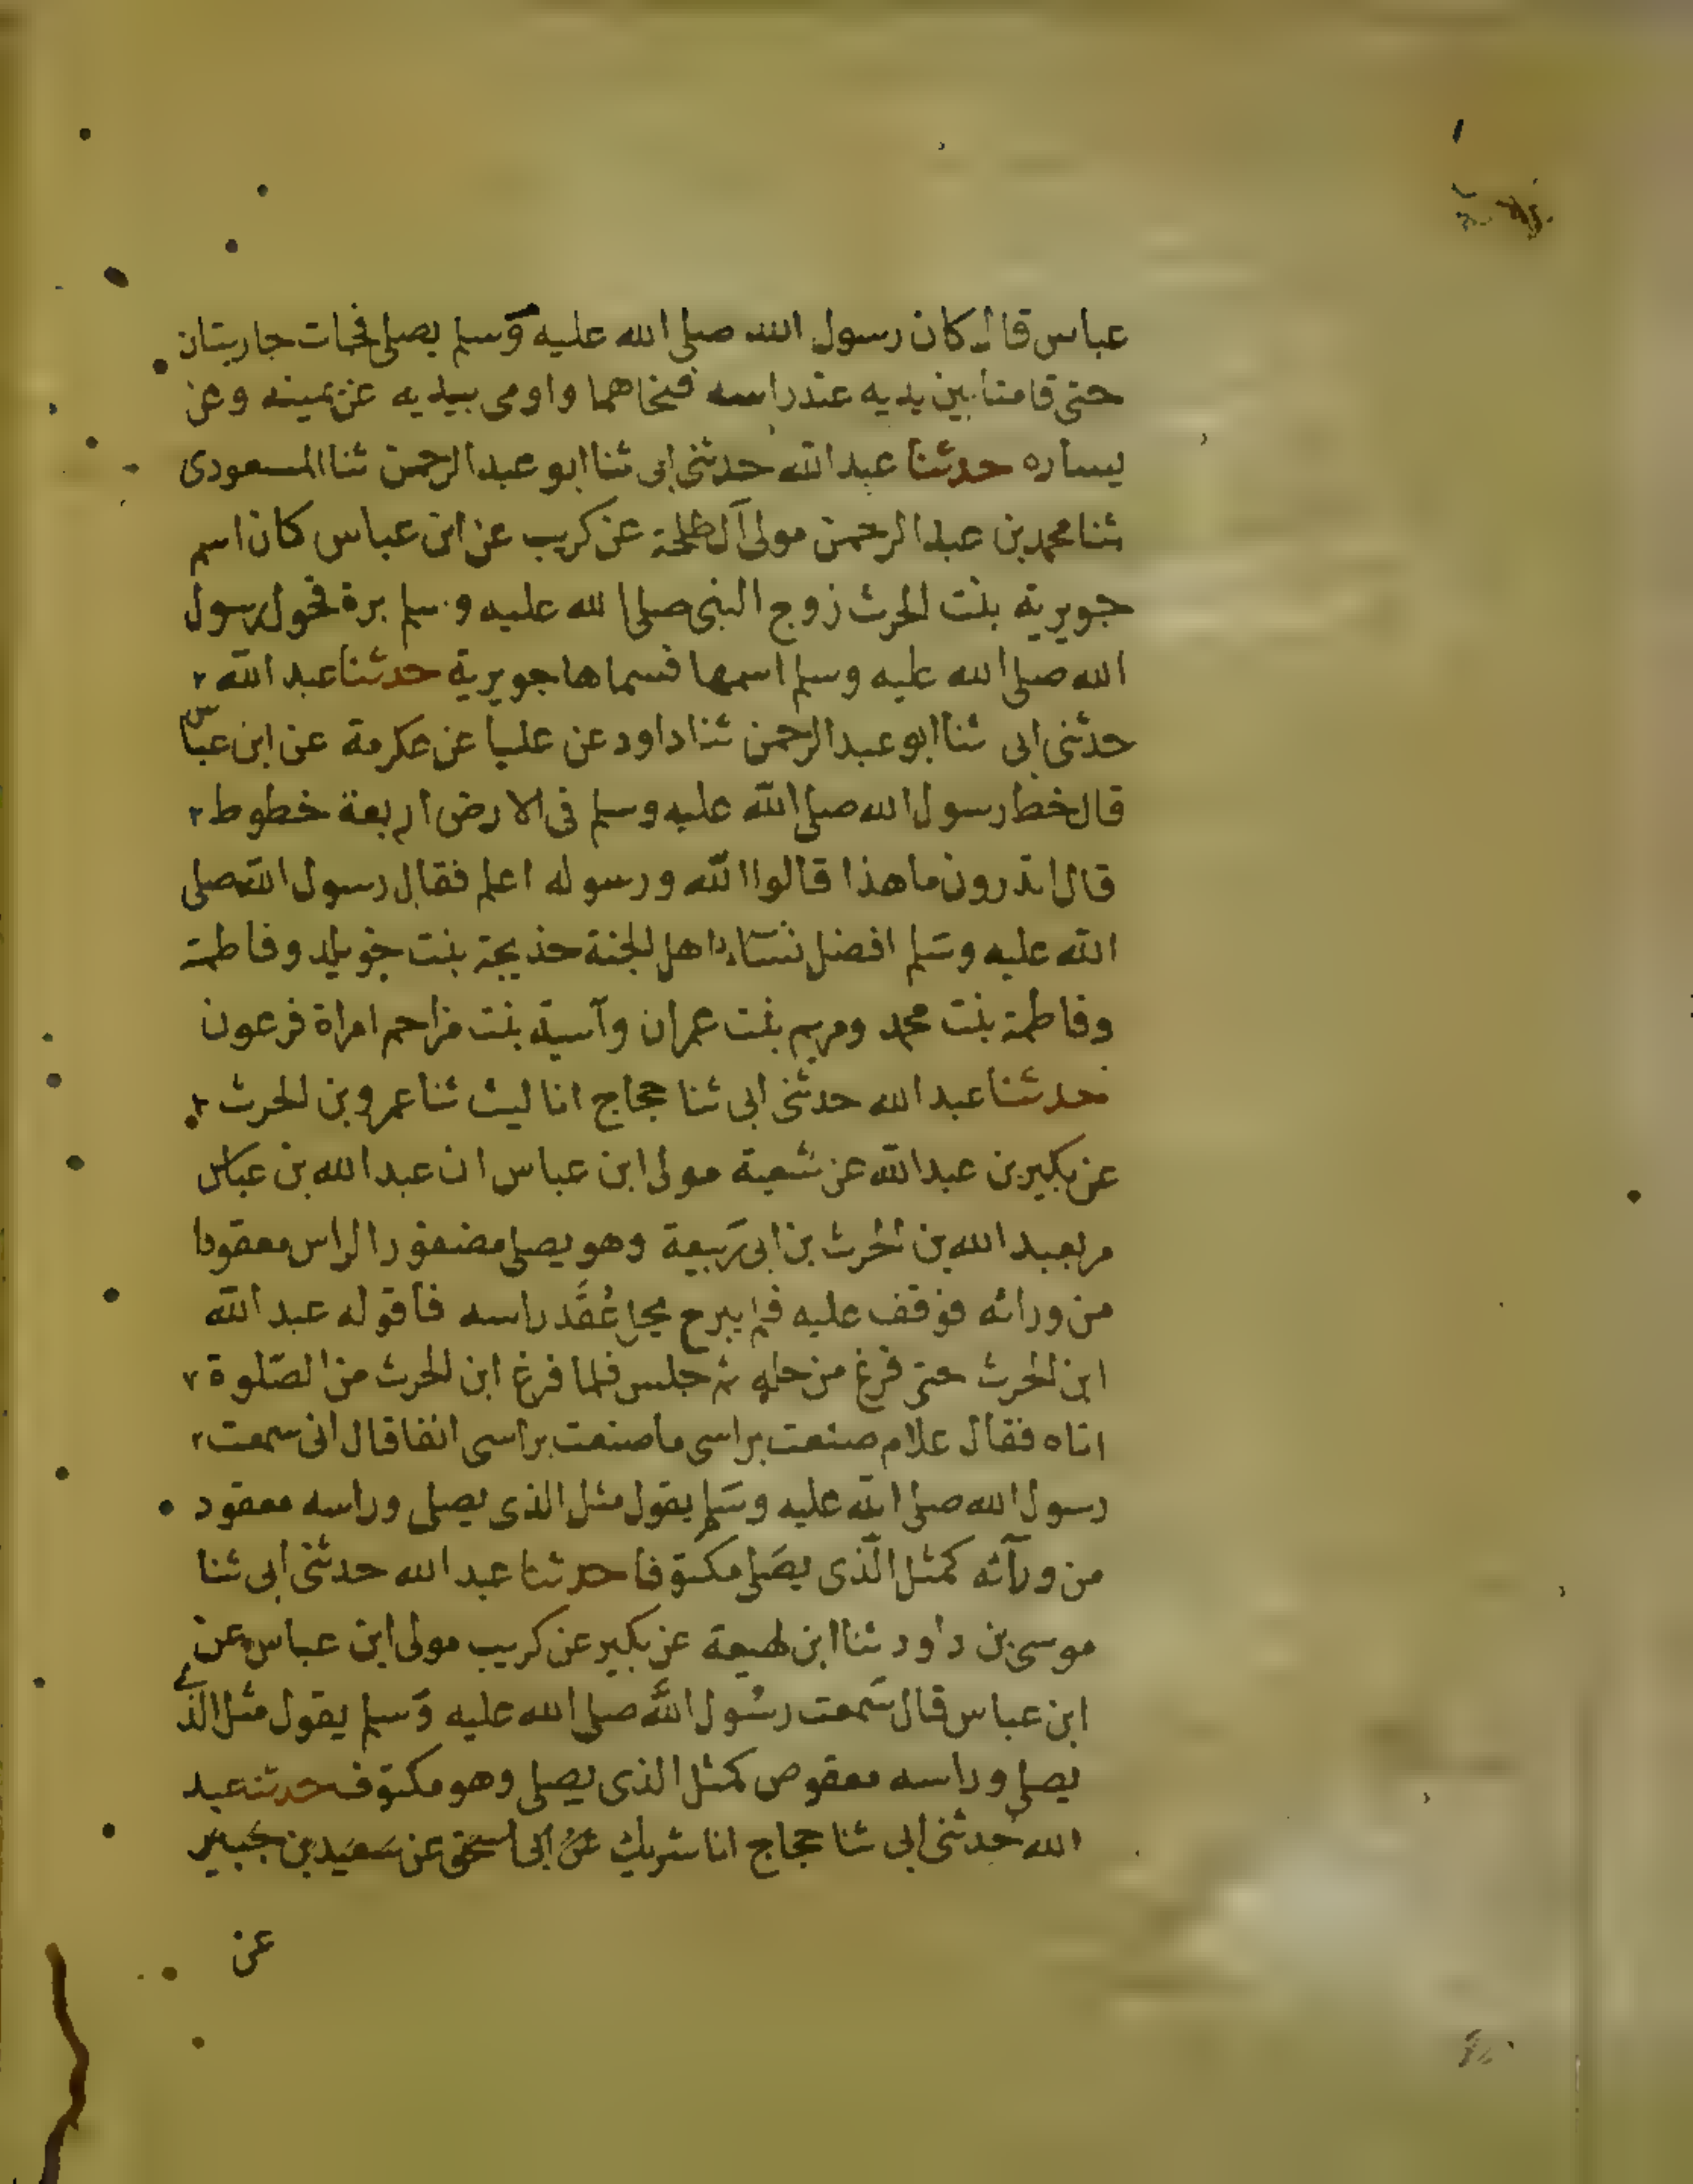 عباس قال كان رسول الله صلى الله عليه وسلم يصلى فجات جاريتان
حتى قامتا بين يديه عند راسه فنحاهما واومى بيديه عن يمينه وعن
يساره حدثنا عبد الله حدثنى ابى ثنا ابو عبد الرحمن ثنا المسعودى
ثنا محمد بن عبد الرحمن مولى آل طلحة عن كريب عن ابن عباس كان اسم
جويرية بنت الحرث زوج النبى صلى الله عليه وسلم برة فحول رسول
الله صلى الله عليه وسلم اسمها فسماها جويرية حدثنا عبد الله
حدثنى ابى ثنا ابو عبد الرحمن ثنا داود عن علبا عن عكرمة عن ابن عباس
قال خط رسول الله صلى الله عليه وسلم فى الارض اربعة خطوط
قال اتدرون ما هذا قالوا الله ورسوله اعلم فقال رسول الله صلى
الله عليه وسَلم افضل نسَاء اهل الجنة خديجة بنت خويلد وفاطمة
وفاطمة بنت محمد ومريم بنت عمران وآسية بنت مزاحم امراة فرعون
حدثنا عبد الله حدثنى ابى ثنا حجاج انا ليث ثنا عمرو بن الحرث
عن بكير بن عبد الله عن شعبة مولى ابن عباس ان عبد الله بن عباس
مر بعبد الله بن الحرث بن ابى ربيعة وهو يصلى مضفور الراس معقودا
من ورائه فوقف عليه فلم يبرح يحل عُقَد راسه فاقر له عبد الله
ابن الحرث حتى فرغ من حله ثم جلس فلما فرغ ابن الحرث من الصّلوة
اتاه فقال علام صنعت براسى ما صنعت براسى انفا قال انى سمعت
رسول الله صلى الله عليه وسَلم يقول مثل الذى يصلى وراسه معقود
من ورآئه كمثل الّذى يصَلى مكتوفا حدثنا عبد الله حدثنى ابى ثنا
موسى بن داود ثنا ابن لهيعة عن بكير عن كريب مولى ابن عباس عن
ابن عباس قال سَمعت رسُول اللَّه صلى الله عليه وَسلم يقول مثل الذى
يصلى وراسه معقوص كمثل الذى يصلى وهو مكتوف حدثنا عبد
الله حدثنى ابى ثنا حجاج انا شريك عن ابى اسحق عن سَعيَد بن جبير
عن